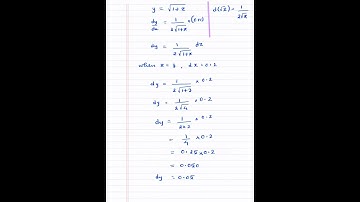 y = √1+x
d(√x) = 1/2√x
dy/dx = 1/2√1+x × (0+1)
dy = 1/2√1+x dx
when x = 3, dx = 0.2
dy = 1/2√1+3 × 0.2
dy = 1/2√4 × 0.2
dy = 1/2×2 × 0.2
= 1/4 × 0.2
= 0.25 × 0.2
= 0.050
dy = 0.05